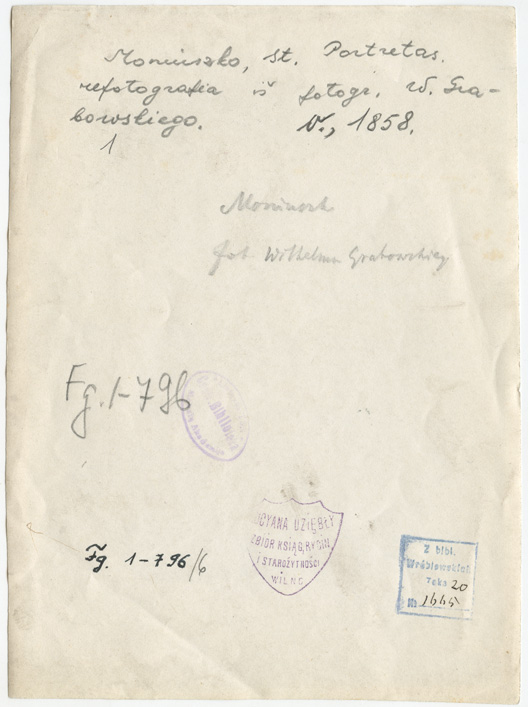 Moniuszko, St. Portretas.
refotografia iš fotogr. W. Gra-
bowskiego. V., 1858.
1
Moniuszk
fot. Wilhelma Grabowskieg
Fg. 1-796
Biblioteka
Fg. 1-796/6
UCYANA UZIĘBŁY
ZBIÓR KSIĄG, RYCIN,
I STAROŻYTNOŚCI
WILNO
Z bibl.
Wróblewskich
Teka 20
№ 1665